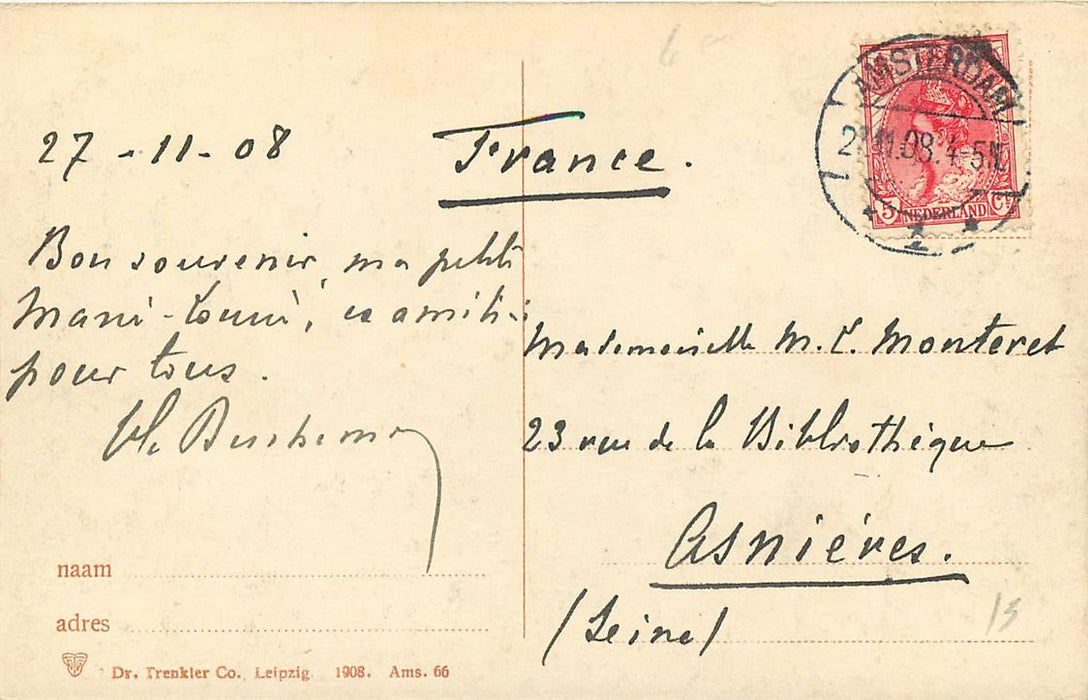 27-11-08
France.
Bon souvenir, ma petite
Mami-Louni, et amitiés
pour tous.
Mademoiselle M. L. Monteret
23 rue de la Bibliothèque
Asnières.
(Seine)
AMSTERDAM
11.08.4-5N
1
5 NEDERLAND Ct
naam
adres
Dr. Trenkler Co., Leipzig. 1908. Ams. 66